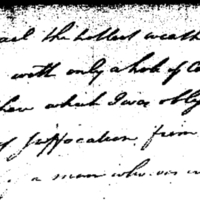 the hottest weath
with only a hole of
which I was oblig
of suffocation from
a man who was